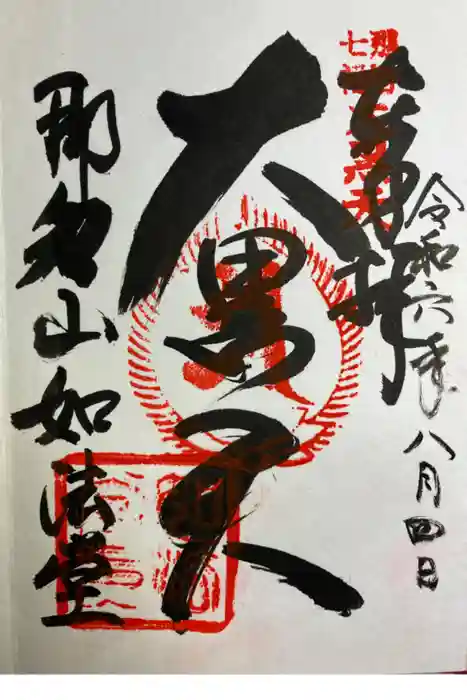 奉拝
令和六年八月四日
大黒天
那智山如法堂